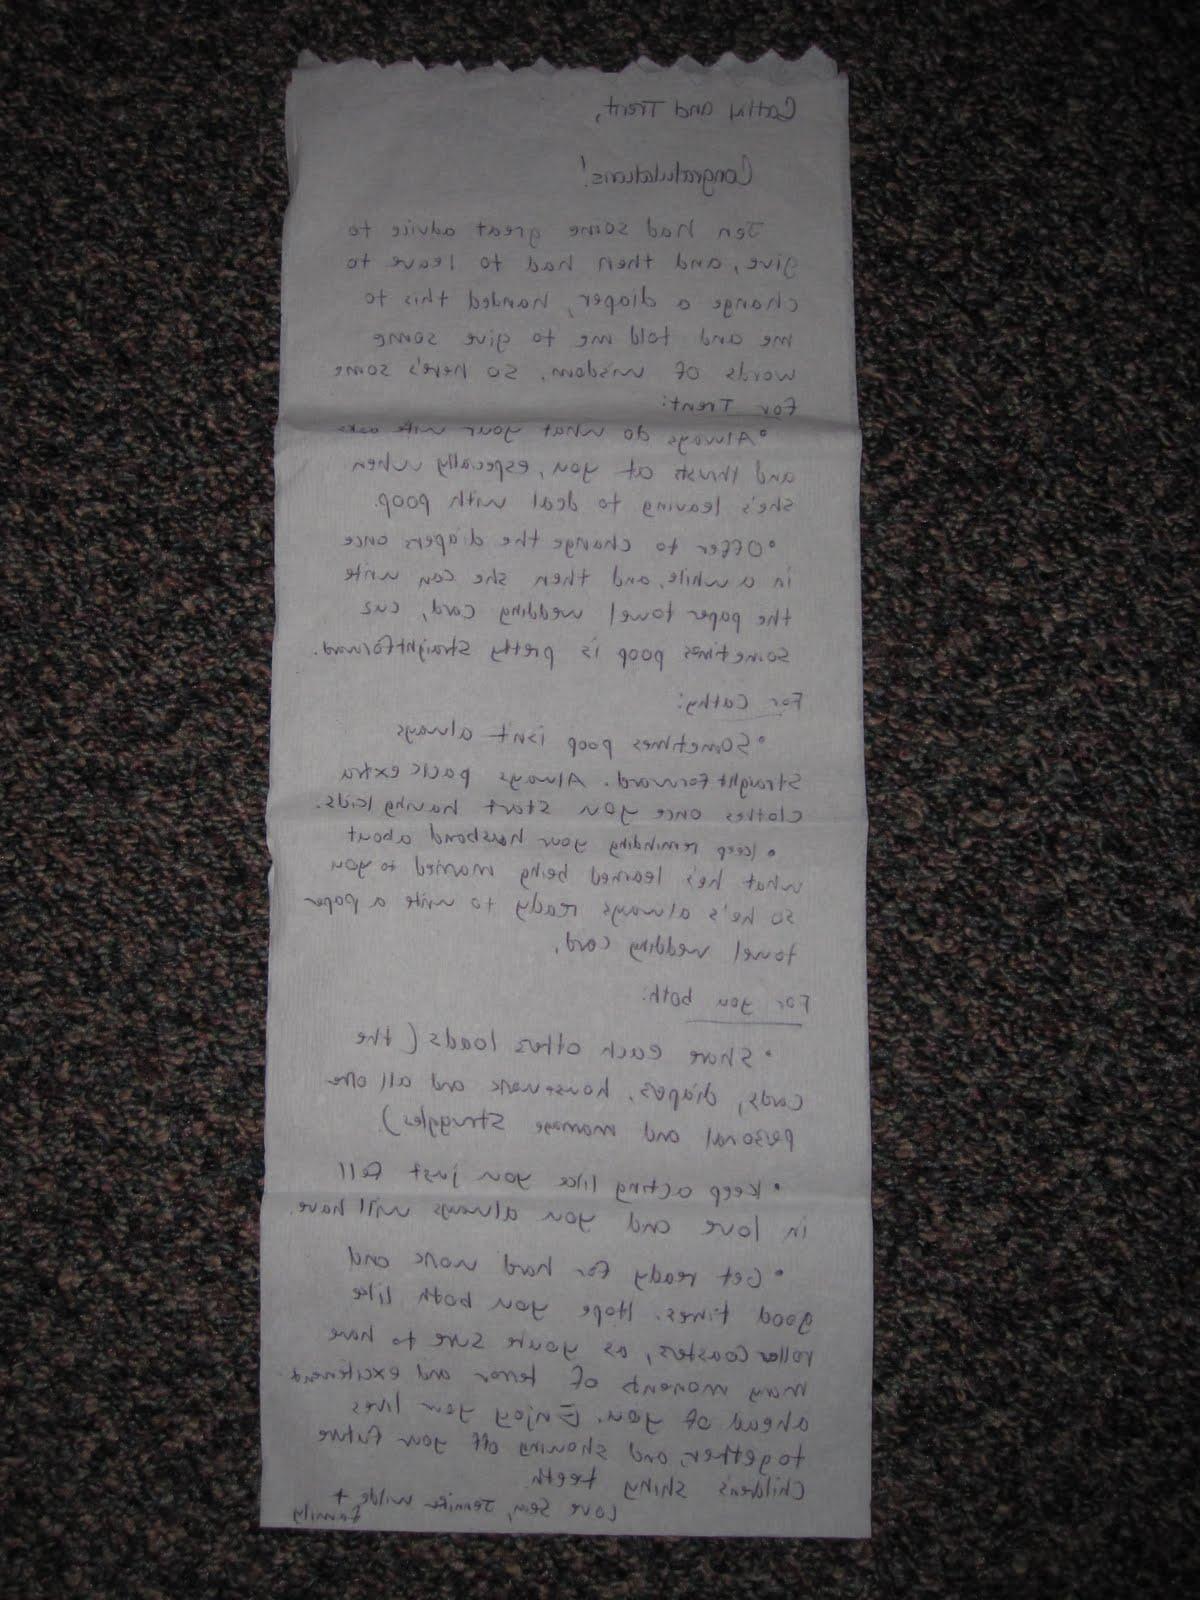 Cathy and Trent,
Congratulations!
Jen had some great advice to
give, and then had to leave to
change a diaper, handed this to
me and told me to give some
words of wisdom. so here's some
For Trent:
• Always do what your wife asks
and thrusts at you, especially when
she's leaving to deal with poop.
• Offer to change the diapers once
in a while, and then she can write
the paper towel wedding card, cus
sometimes poop is pretty straightforward.
For Cathy:
• Sometimes poop isn't always
straight forward. Always pack extra
clothes once you start having kids.
• Keep reminding your husband about
what he's learned being married to you
so he's always ready to write a paper
towel wedding card.
For you both:
• Share each others loads (the
cards, diapers, housework and all
personal and marriage struggles)
• Keep acting like you just fell
in love and you always will have.
• Get ready for hard work and
good times. Hope you both like
roller coasters, as you're sure to have
many moments of terror and excitement
ahead of you. Enjoy your lives
together, and showing off your future
children's shiny teeth.
Love Sean, Jennifer Wilde +
Family